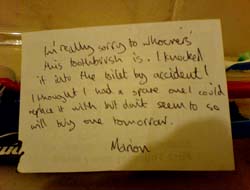 I'm really sorry to whoevers'
this toothbrush is. I knocked
it into the toilet by accident!
I thought I had a spare one I could
replace it with but don't seem to so
will buy one tomorrow.
Marion